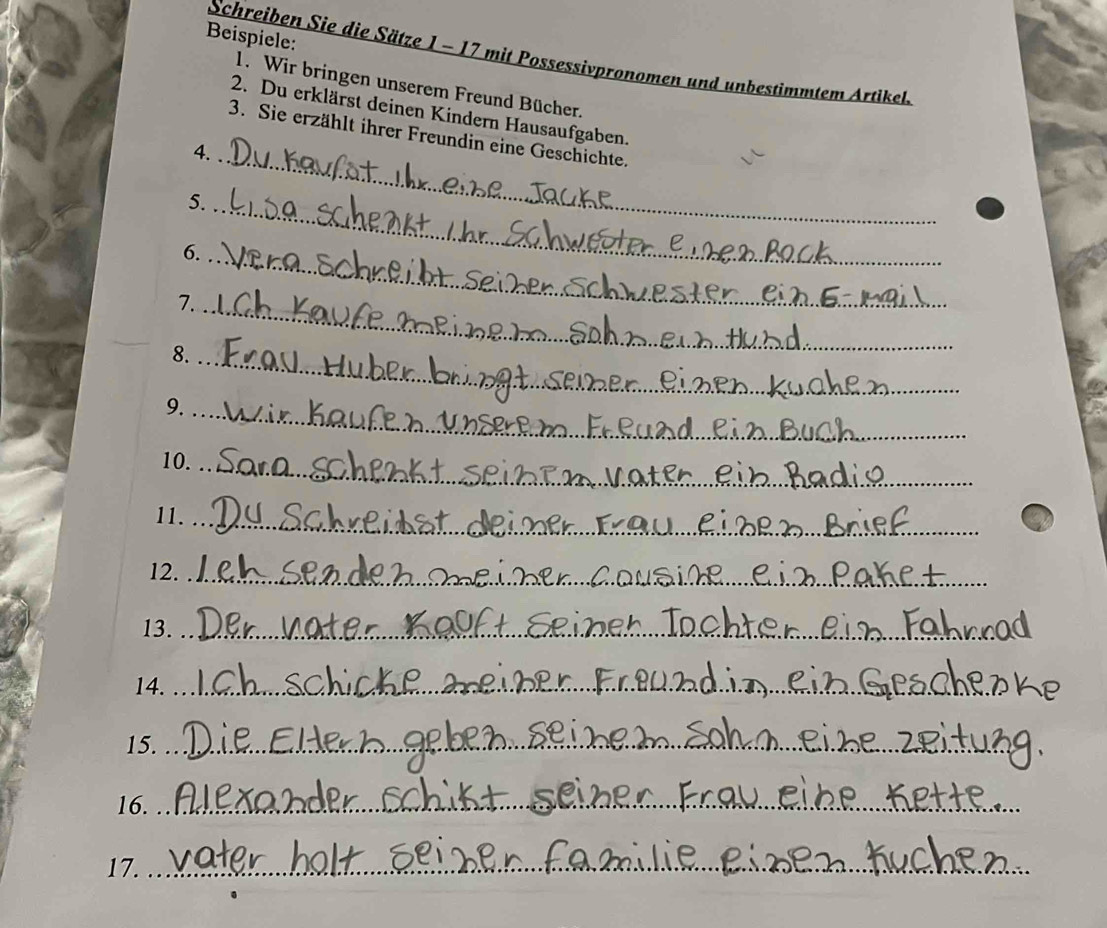 Schreiben Sie die Sätze 1 – 17 mit Possessivpronomen und unbestimmtem Artikel.
Beispiele:
1. Wir bringen unserem Freund Bücher.
2. Du erklärst deinen Kindern Hausaufgaben.
3. Sie erzählt ihrer Freundin eine Geschichte.
4. Du kaufst Ihr eine Jacke
5. Lisa schenkt Ihr Schwester einen Rock
6. Vera schreibt seiner Schwester ein E-mail
7. Ich kaufe meinem sohn ein Hund.
8. Frau Huber bringt seiner einen kuchen
9. Wir kaufen unserem Freund ein Buch
10. Sara schenkt seinem vater ein Radio
11. Du Schreibst deiner Frau einen Brief
12. Ich senden meiner cousine ein Paket
13. Der vater kauft seiner Tochter ein Fahrrad
14. Ich schicke meiner Freundin ein Geschenke
15. Die Eltern geben seinem sohn eine zeitung.
16. Alexander schikt seiner Frau eine kette.
17. vater holt seiner familie einen kuchen.